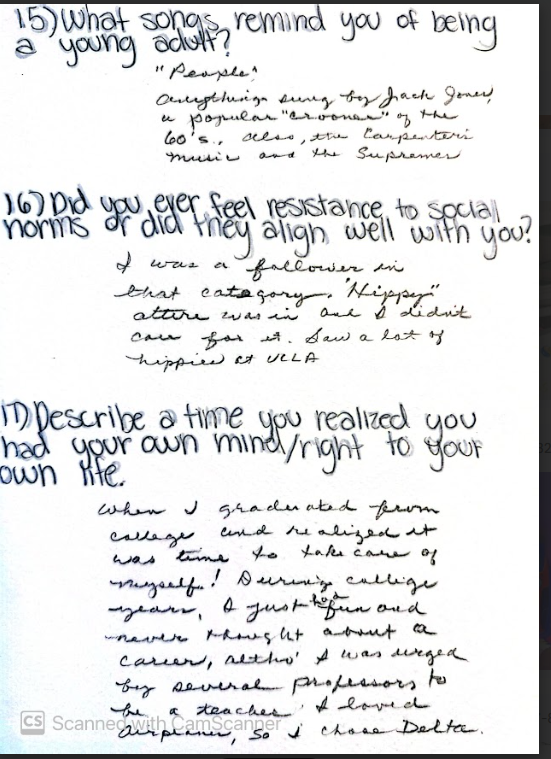 15) What songs remind you of being
a young adult?
"People"
Anything sung by Jack Jones,
a popular "crooner" of the
60's., also, the Carpenters
music and the Supremes
16) Did you ever feel resistance to social
norms or did they align well with you?
I was a follower in
that category. "Hippy"
attire was in and I didnt
care for it. Saw a lot of
hippies at UCLA
17) Describe a time you realized you
had your own mind/right to your
own life.
When I graduated from
college and realized it
was time to take care of
myself! During college
years, I just had fun and
never thought about a
career, altho' I was urged
by several professors to
be a teacher. I loved
airplanes, so I chose Delta.
CS Scanned with CamScanner